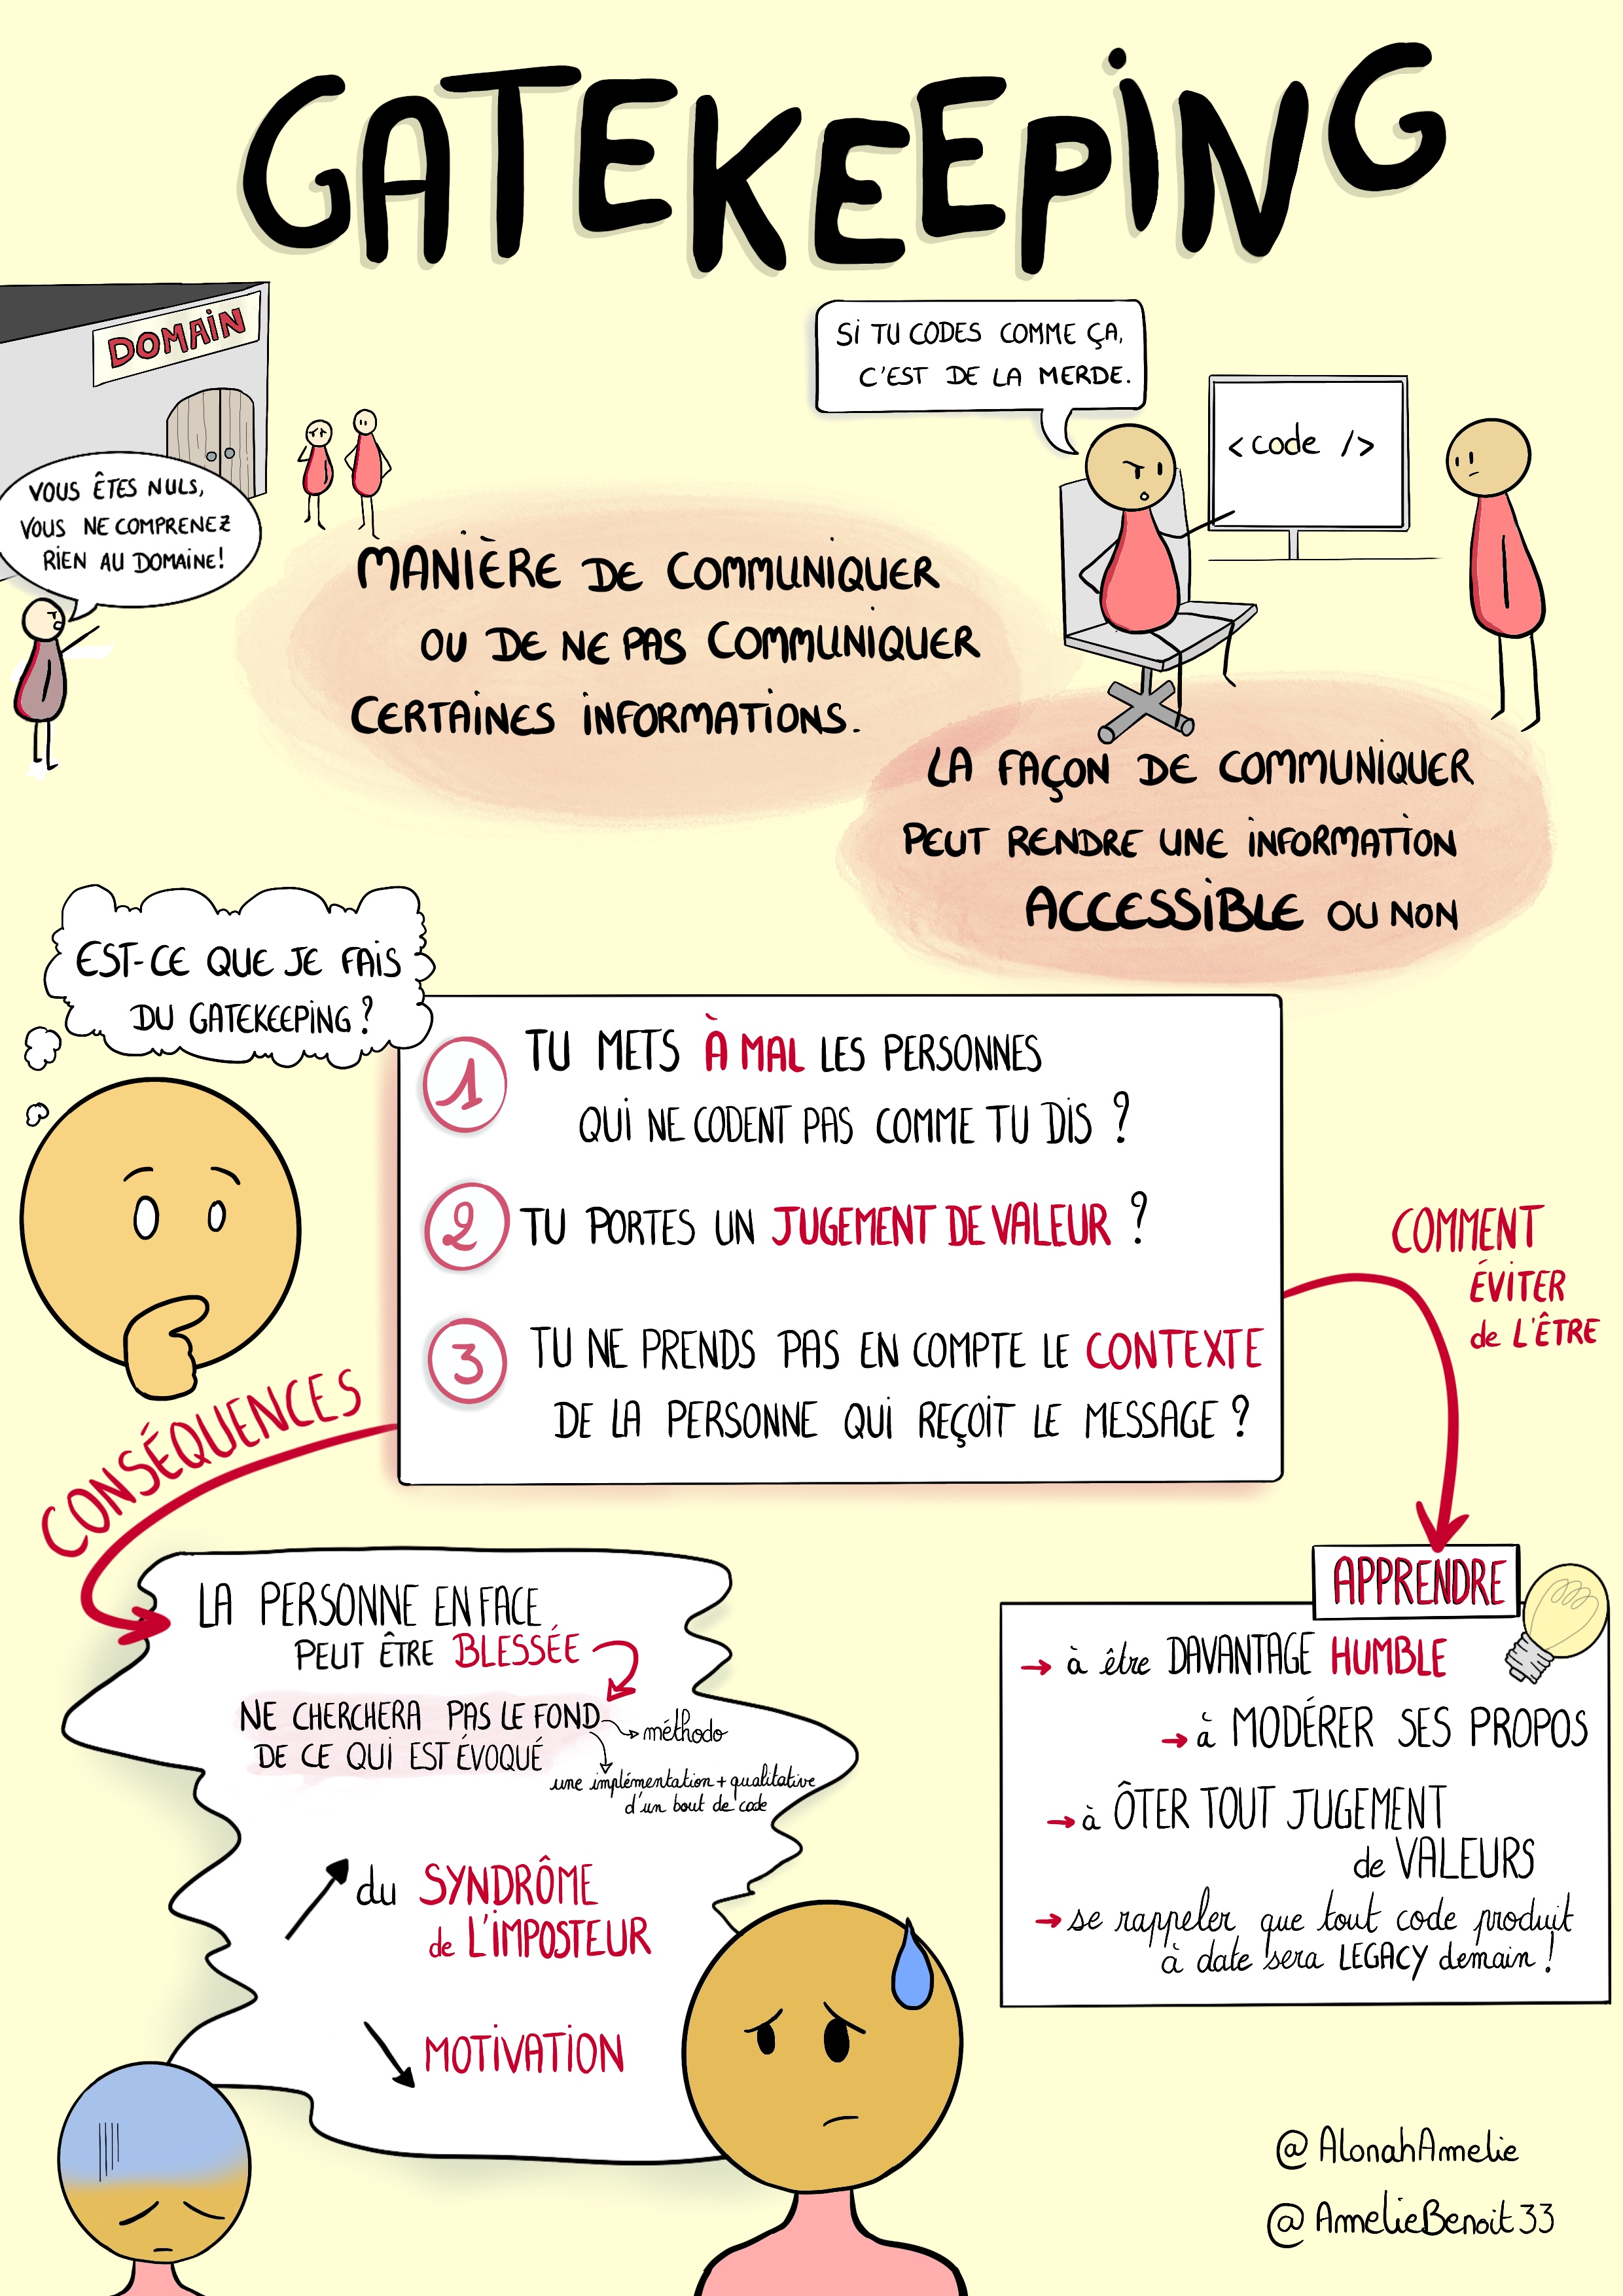 GATEKEEPING
DOMAIN
VOUS ÊTES NULS,
VOUS NE COMPRENEZ
RIEN AU DOMAINE!
SI TU CODES COMME ÇA,
C'EST DE LA MERDE.
<code />
MANIÈRE DE COMMUNIQUER
OU DE NE PAS COMMUNIQUER
CERTAINES INFORMATIONS.
LA FAÇON DE COMMUNIQUER
PEUT RENDRE UNE INFORMATION
ACCESSIBLE OU NON
EST-CE QUE JE FAIS
DU GATEKEEPING ?
1 TU METS À MAL LES PERSONNES
QUI NE CODENT PAS COMME TU DIS ?
2 TU PORTES UN JUGEMENT DE VALEUR ?
3 TU NE PRENDS PAS EN COMPTE LE CONTEXTE
DE LA PERSONNE QUI REÇOIT LE MESSAGE ?
CONSÉQUENCES
LA PERSONNE EN FACE
PEUT ÊTRE BLESSÉE
NE CHERCHERA PAS LE FOND
DE CE QUI EST ÉVOQUÉ
méthodo
une implémentation + qualitative
d'un bout de code
du SYNDRÔME
de L'IMPOSTEUR
MOTIVATION
COMMENT
ÉVITER
de L'ÊTRE
APPRENDRE
→ à être DAVANTAGE HUMBLE
→ à MODÉRER SES PROPOS
→ à ÔTER TOUT JUGEMENT
de VALEURS
→ se rappeler que tout code produit
à date sera LEGACY demain !
@AlonahAmelie
@AmelieBenoit33